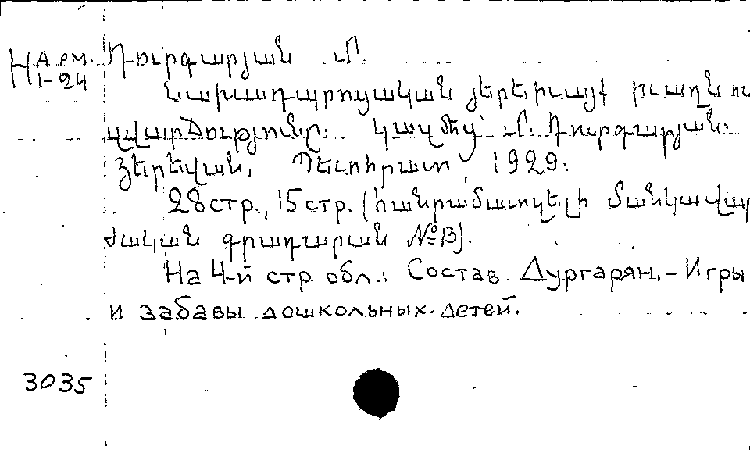 Н Арм.
1-24
Դուրգարյան Մ.
Նախադպրոցական յերեխայի խաղն ու
զվարճությունը. Կազմեց՝ Մ. Դուրգարյան.
Յերեվան, Պետհրատ, 1929.
28 стр., 15 стр. (հանրամատչելի մանկավար
ժական գրադարան №13).
На 4-й стр. обл.: Состав. Дургарян.-Игры
и забавы дошкольных детей.
3035